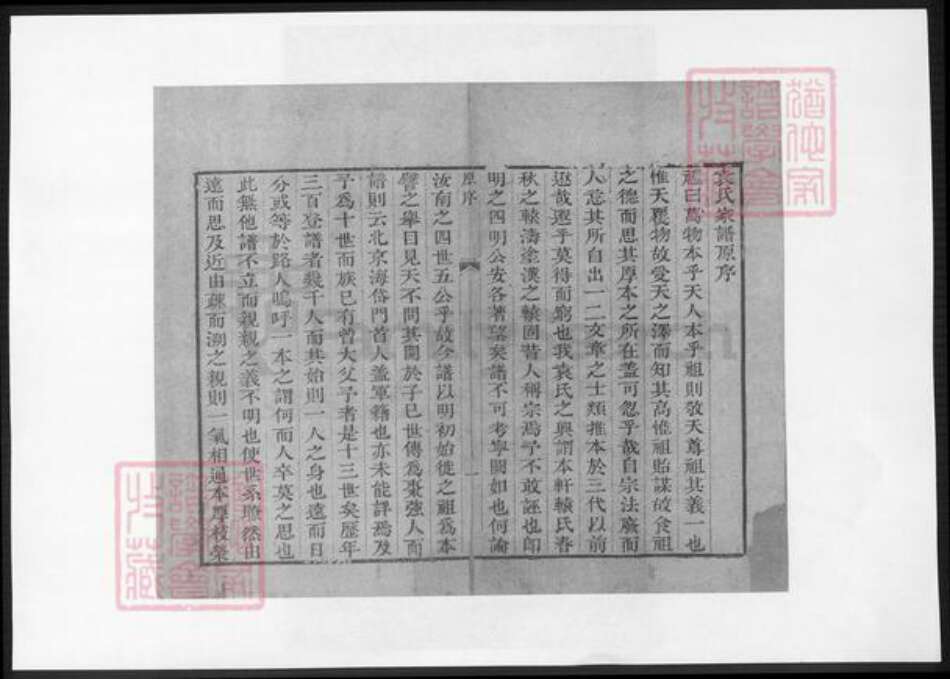 袁氏家譜原序
禮曰萬物本乎天人本乎祖則敬天尊祖其義一也
惟天覆物故愛天之澤而知其高惟祖貽謀故食祖
之德而思其厚本之所在盖可忽乎哉自宗法廢而
人忘其所自出一二文章之士類推本於三代以前
遐哉邈乎莫得而窮也我袁氏之興謂本軒轅氏春
秋之轅濤塗漢之轅固昔人稱宗焉予不敢誣也即
明之四明公安各著望矣譜不可考寧闕如也何論
原序
一
汝南之四世五公乎故今譜以明初始徙之祖為本
譬之舉目見天不問其聞於子已世傳為棗強人而
譜則云北京海岱門首人盖軍籍也亦未能詳焉及
予為十世而族已有曾大父予者是十三世矣歷年
三百登譜者幾千人而其始則一人之身也遠而日
分或等於路人嗚呼一本之謂何而人卒莫之思也
此無他譜不立而親親之義不明也使世系瞭然由
遠而思及近由疎而溯之親則一氣相通本厚枝榮
猶他家
譜學會
收藏
猶他家
譜學會
收藏